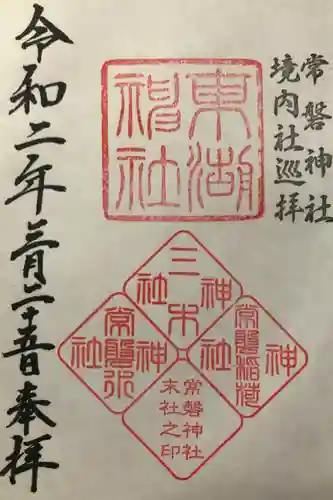 常磐神社
境内社巡拝
東湖神社
三木神社
常磐稲荷神社
常磐水神社
常磐神社
末社之印
令和二年三月二十五日奉拝